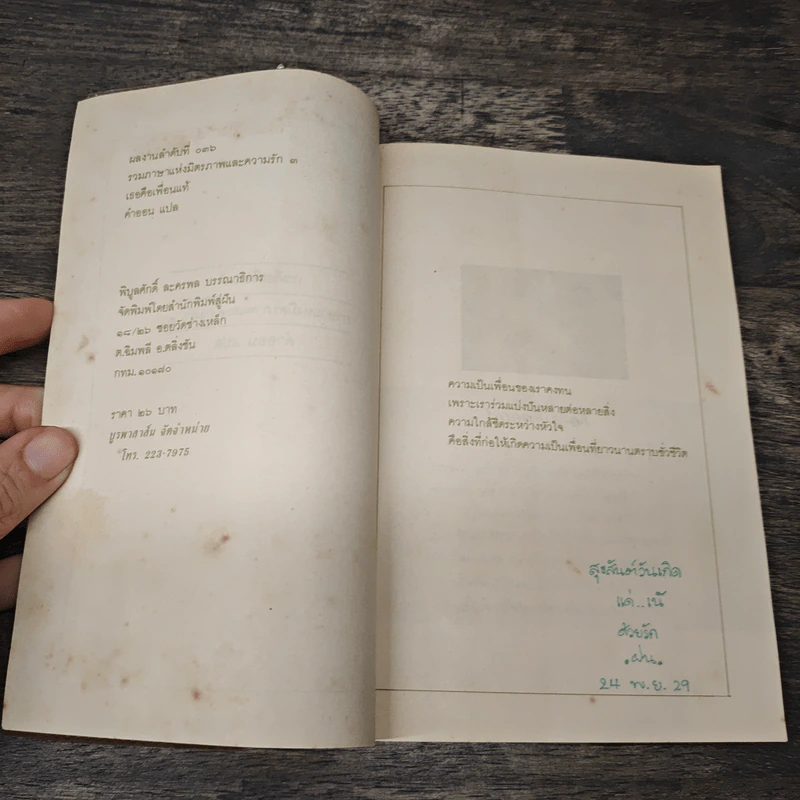 ผลงานลำดับที่ ๐๓๖
รวมภาษาแห่งมิตรภาพและความรัก ๓
เธอคือเพื่อนแท้
คำออน แปล
พิบูลศักดิ์ ละครพล บรรณาธิการ
จัดพิมพ์โดยสำนักพิมพ์สู่ฝัน
๑๘/๒๖ ซอยวัดช่างเหล็ก
ต.ฉิมพลี อ.ตลิ่งชัน
กทม.๑๐๑๘๐
ราคา ๒๖ บาท
บูรพาสาส์น จัดจำหน่าย
โทร. 223-7975
ความเป็นเพื่อนของเราคงทน
เพราะเราร่วมแบ่งปันหลายต่อหลายสิ่ง
ความใกล้ชิดระหว่างหัวใจ
คือสิ่งที่ก่อให้เกิดความเป็นเพื่อนที่ยาวนานตราบชั่วชีวิต
สุขสันต์วันเกิด
แด่..
ด้วยรัก
.ฝน.
24 พ.ย. 29